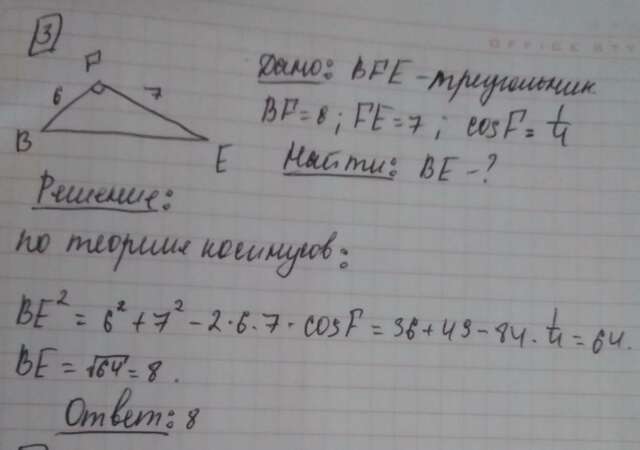 3
F
6
7
B
E
Дано: BFE - треугольник
BF = 8; FE = 7; cosF = 1/4
Найти: BE - ?
Решение:
по теореме косинусов:
BE² = 6² + 7² - 2·6·7·cosF = 36 + 49 - 84·1/4 = 64.
BE = √64 = 8.
Ответ: 8